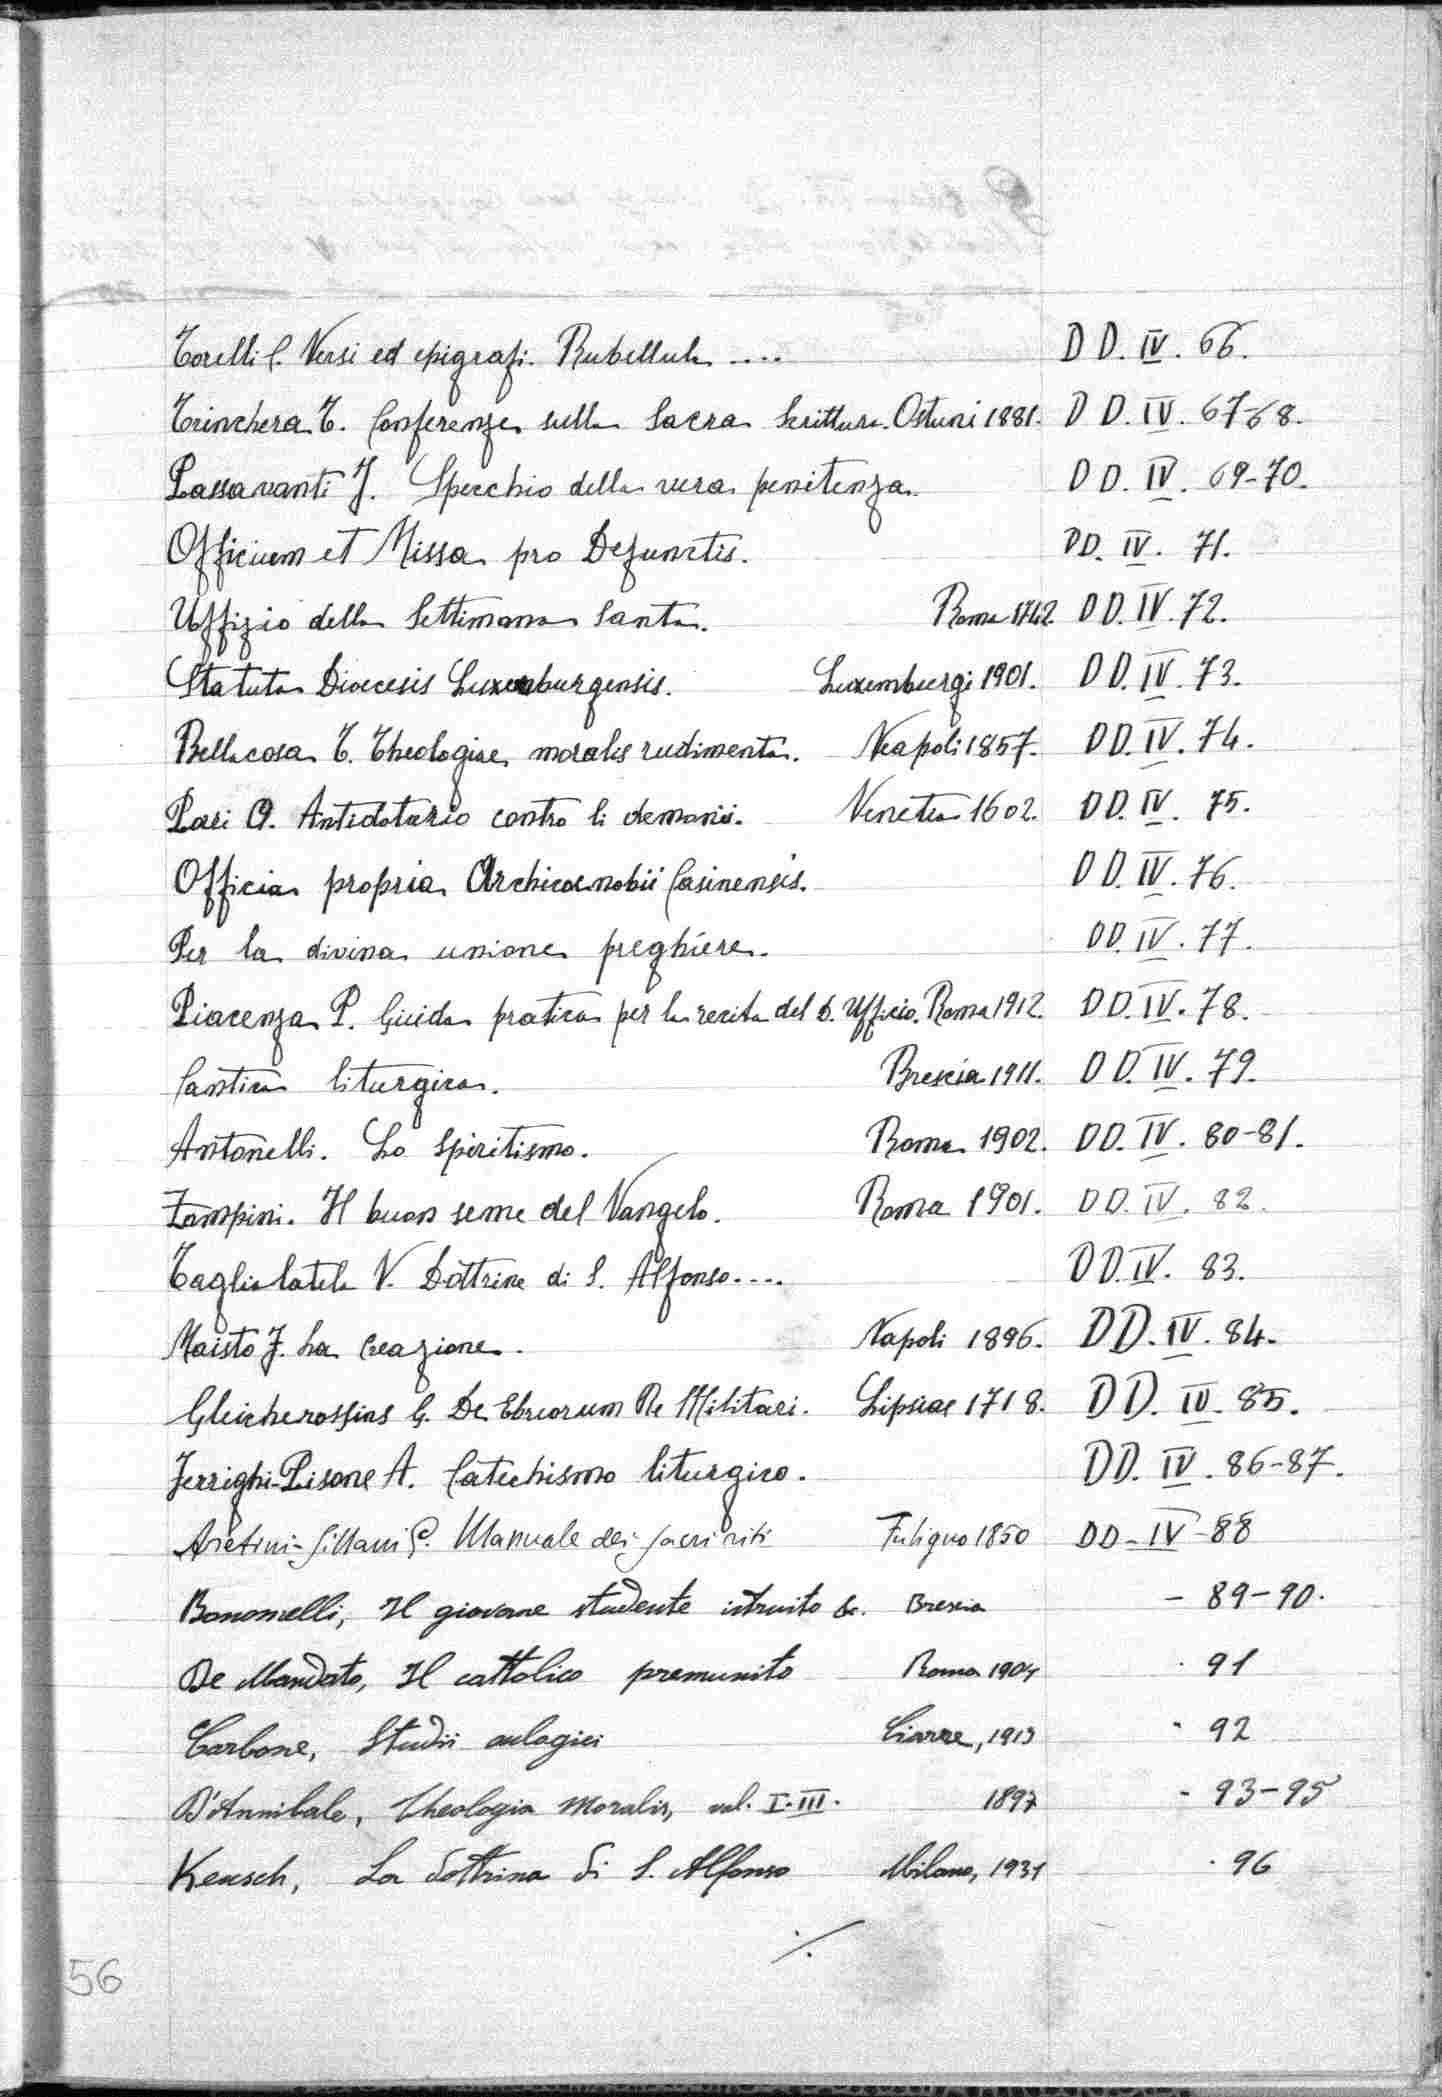 Torelli C. Versi ed epigrafi. Rubellula .... DD. IV. 66.
Trinchera T. Conferenze sulla Sacra Scrittura. Ostuni 1881. DD. IV. 67-68.
Passavanti J. Specchio della vera penitenza. DD. IV. 69-70.
Officium et Missa pro Defunctis. DD. IV. 71.
Uffizio della Settimana Santa. Roma 1742 DD. IV. 72.
Statuta Dioecesis Luxemburgensis. Luxemburgi 1901. DD. IV. 73.
Bellacosa T. Theologiae moralis rudimenta. Neapoli 1857. DD. IV. 74.
Pari O. Antidotario contro li demonii. Venetia 1602. DD. IV. 75.
Officia propria Archicoenobii Casinensis. DD. IV. 76.
Per la divina unione preghiere. DD. IV. 77.
Piacenza P. Guida pratica per la recita del D. Ufficio. Roma 1912. DD. IV. 78.
Cantica liturgica. Brescia 1911. DD. IV. 79.
Antonelli. Lo Spiritismo. Roma 1902. DD. IV. 80-81.
Zampini. Il buon seme del Vangelo. Roma 1901. DD. IV. 82.
Taglialatela V. Dottrine di S. Alfonso.... DD. IV. 83.
Maisto F. La Creazione. Napoli 1896. DD. IV. 84.
G. De Ebreorum Re Militari. Lipsiae 1718. DD. IV. 85.
Ferrighi-Pisone A. Catechismo liturgico. DD. IV. 86-87.
Aretini-Sillani C. Manuale dei sacri riti Fuligno 1850 DD-IV-88
Bonomelli, Il giovane studente istruito &. Brescia - 89-90.
De Mandato, Il cattolico premunito Roma 1904 . 91
Carbone, Studii Giarre, 1913 - 92
D'Annibale, Theologia Moralis, vol. I-III. 1897 - 93-95
Keusch, La dottrina di S. Alfonso Milano, 1931 . 96
./.
56